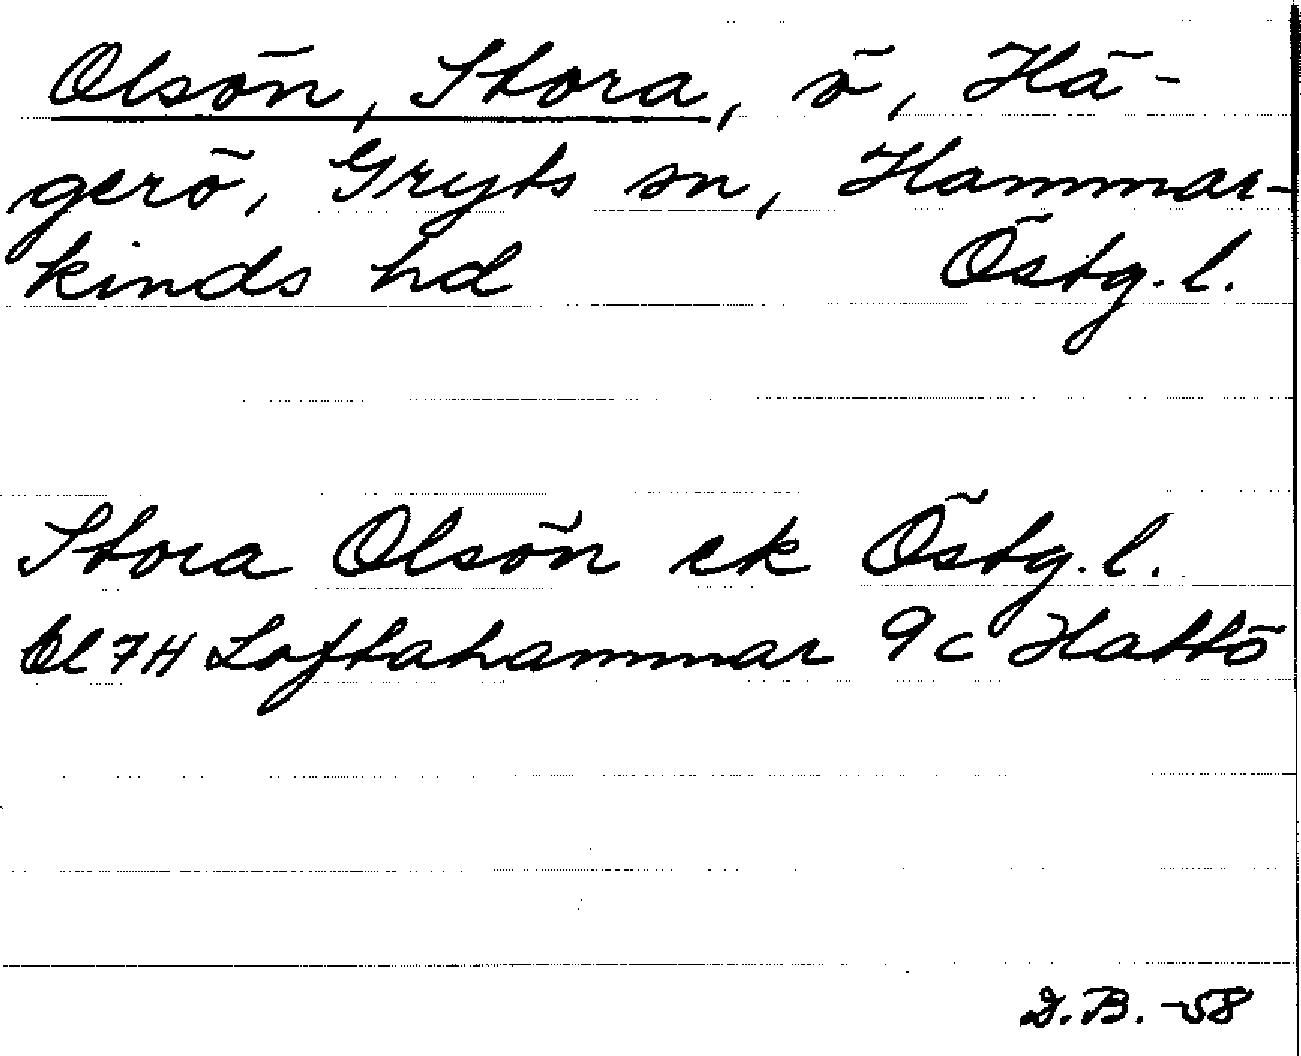 Olsön, Stora, ö, Hä-
gerö, Gryts sn, Hammar-
kinds hd Östg. l.
Stora Olsön ek Östg. l.
bl 7H Loftahammar 9c Hattö
D.B. -58